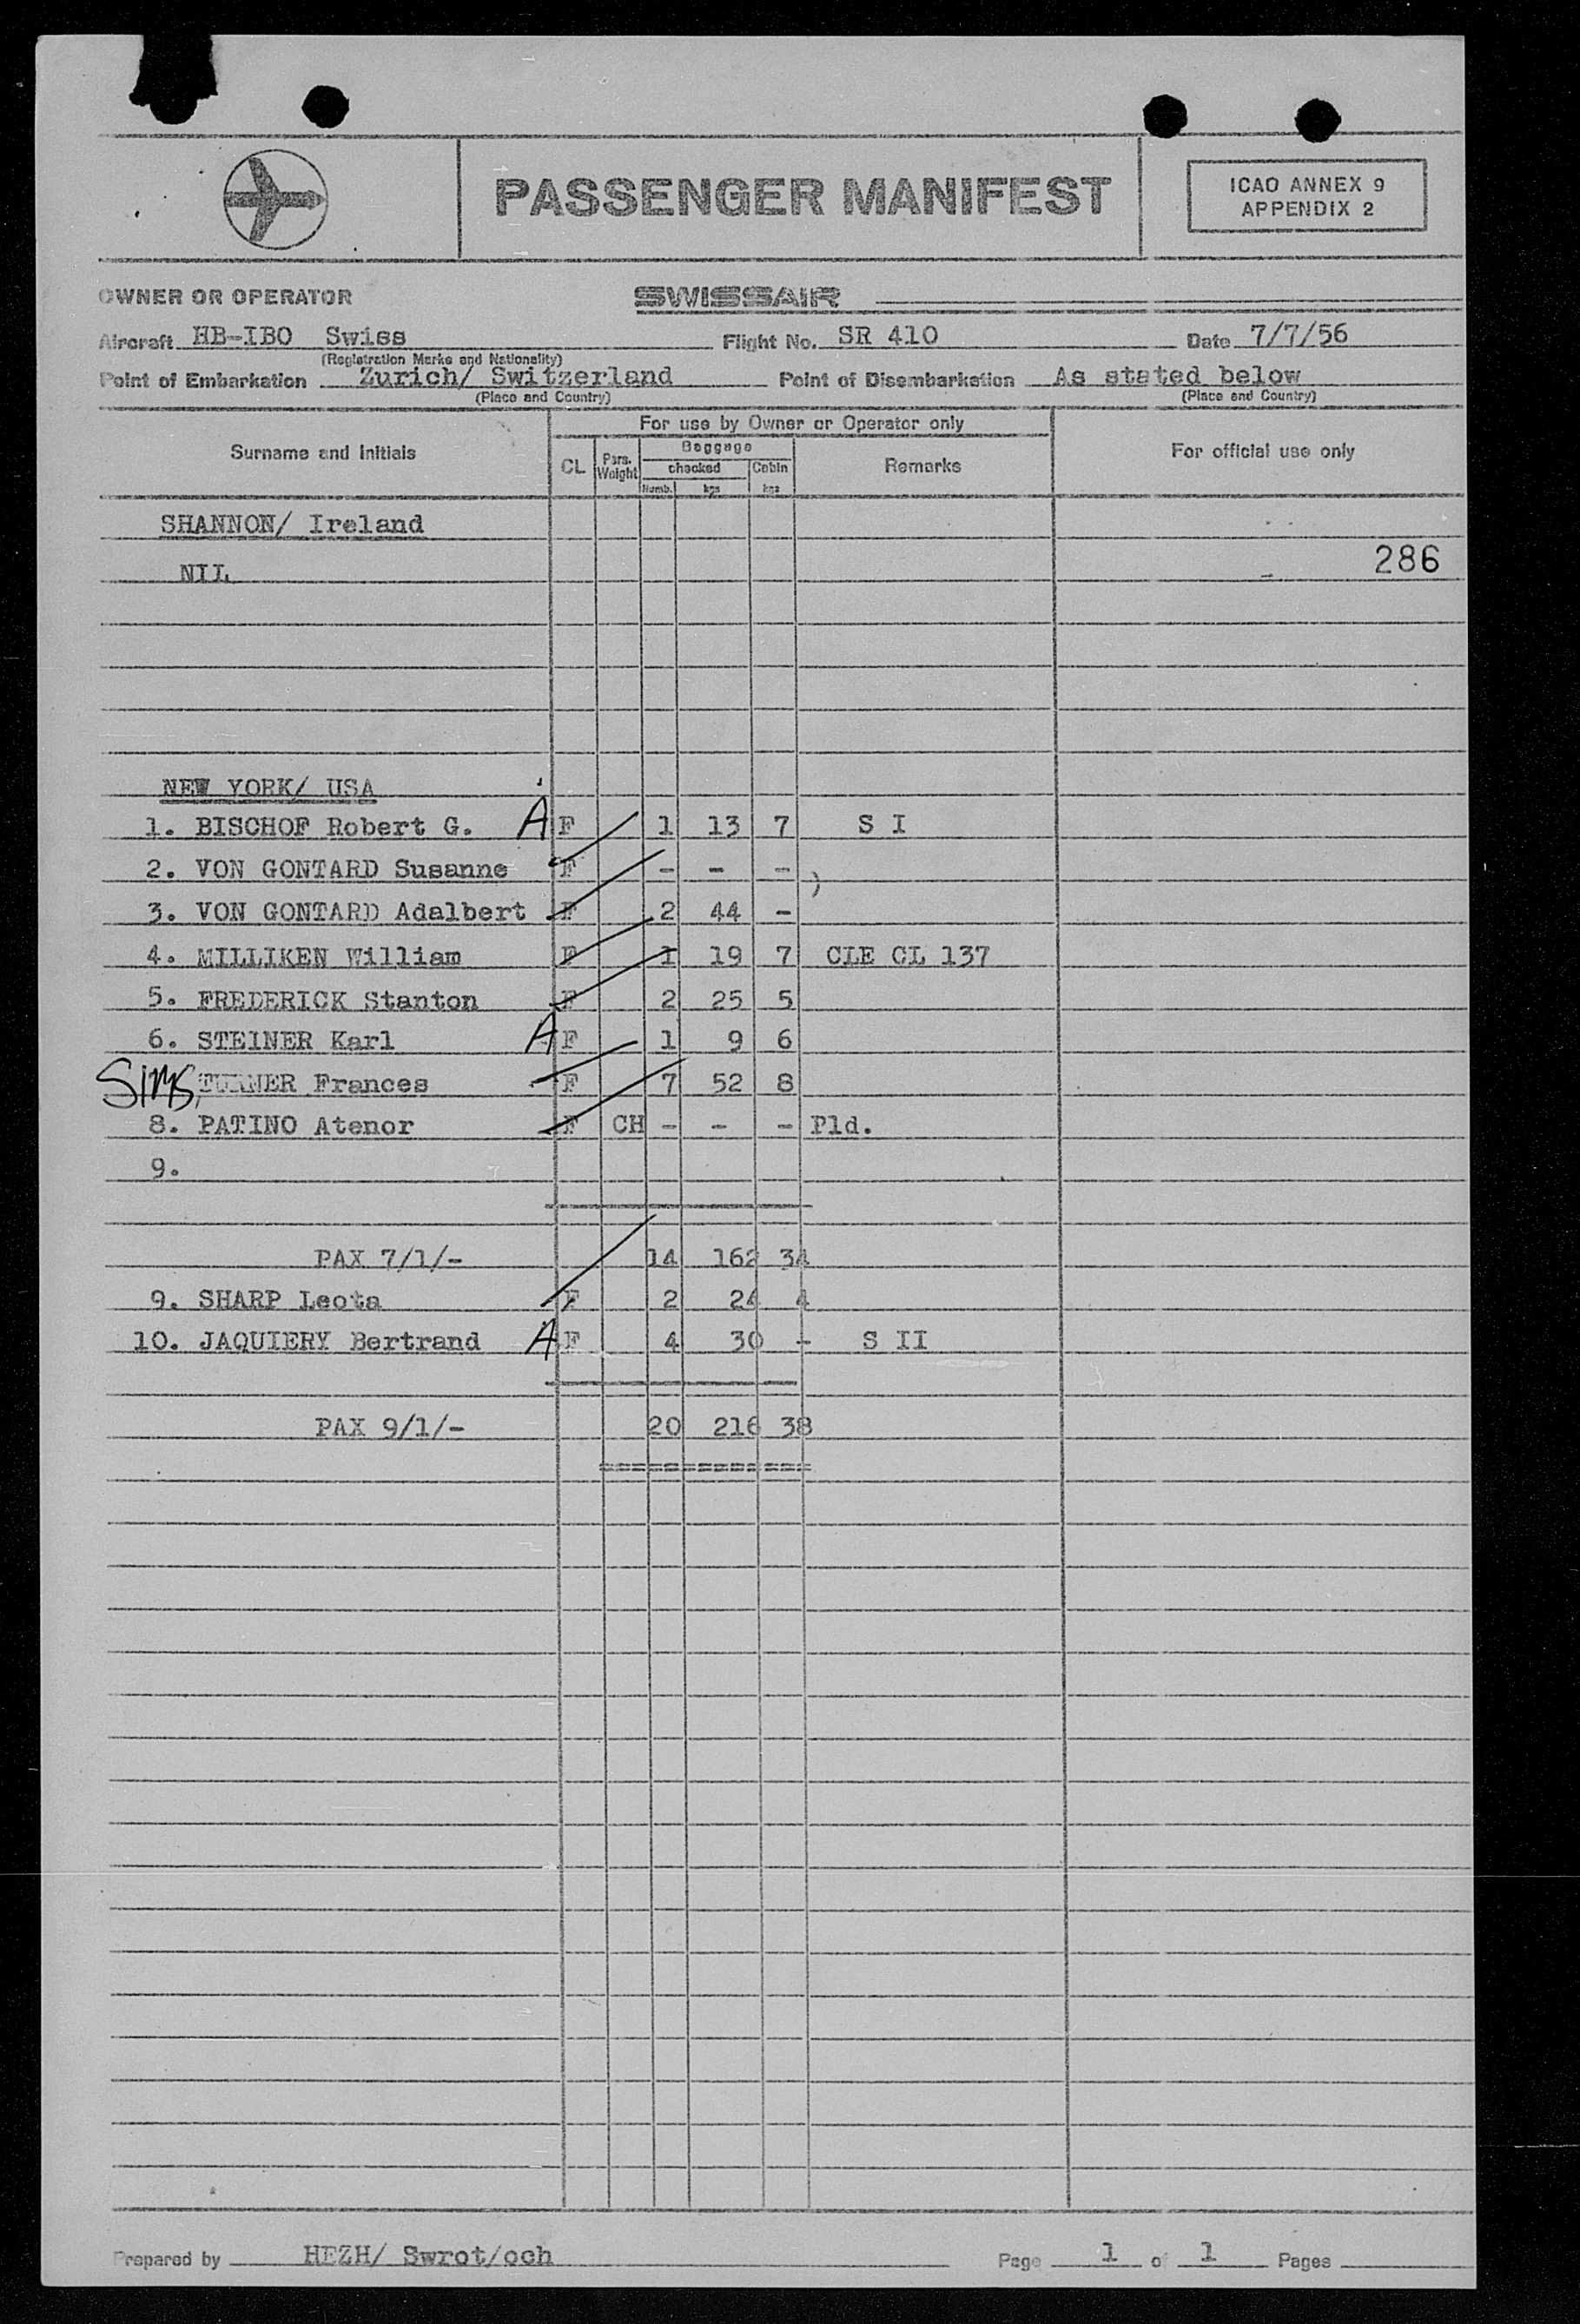 PASSENGER MANIFEST
ICAO ANNEX 9
APPENDIX 2
OWNER OR OPERATOR SWISSAIR
Aircraft HB-IBO Swiss Flight No. SR 410 Date 7/7/56
(Registration Marks and Nationality)
Point of Embarkation Zurich/ Switzerland Point of Disembarkation As stated below
(Place and Country) (Place and Country)
For use by Owner or Operator only
Surname and Initials CL Pars. Weight Baggage checked Numb. kgs Cabin kgs Remarks For official use only
SHANNON/ Ireland
286
NIL
NEW YORK/ USA
1. BISCHOF Robert G. A F 1 13 7 S I
2. VON GONTARD Susanne F - - - )
3. VON GONTARD Adalbert F 2 44 -
4. MILLIKEN William F 1 19 7 CLE CL 137
5. FREDERICK Stanton F 2 25 5
6. STEINER Karl A F 1 9 6
SIMS, TURNER Frances F 7 52 8
8. PATINO Atenor F CH - - - Pld.
9.
PAX 7/1/- 14 162 34
9. SHARP Leota F 2 24 4
10. JAQUIERY Bertrand A F 4 30 - S II
PAX 9/1/- 20 216 38
=============
Prepared by HEZH/ Swrot/och Page 1 of 1 Pages